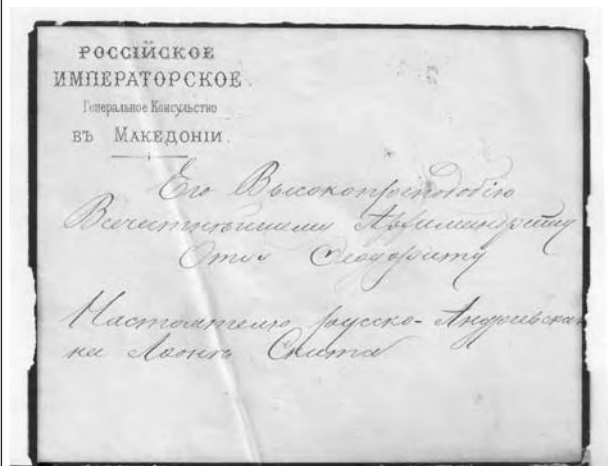 РОССІЙСКОЕ
ИМПЕРАТОРСКОЕ
Генеральное Консульство
ВЪ МАКЕДОНІИ.
Его Высокопреподобію
Всечестнѣйшему Архимандриту
Отцу Ѳеодориту
Настоятелю русско-Андреевскаго
на Аѳонѣ Скита